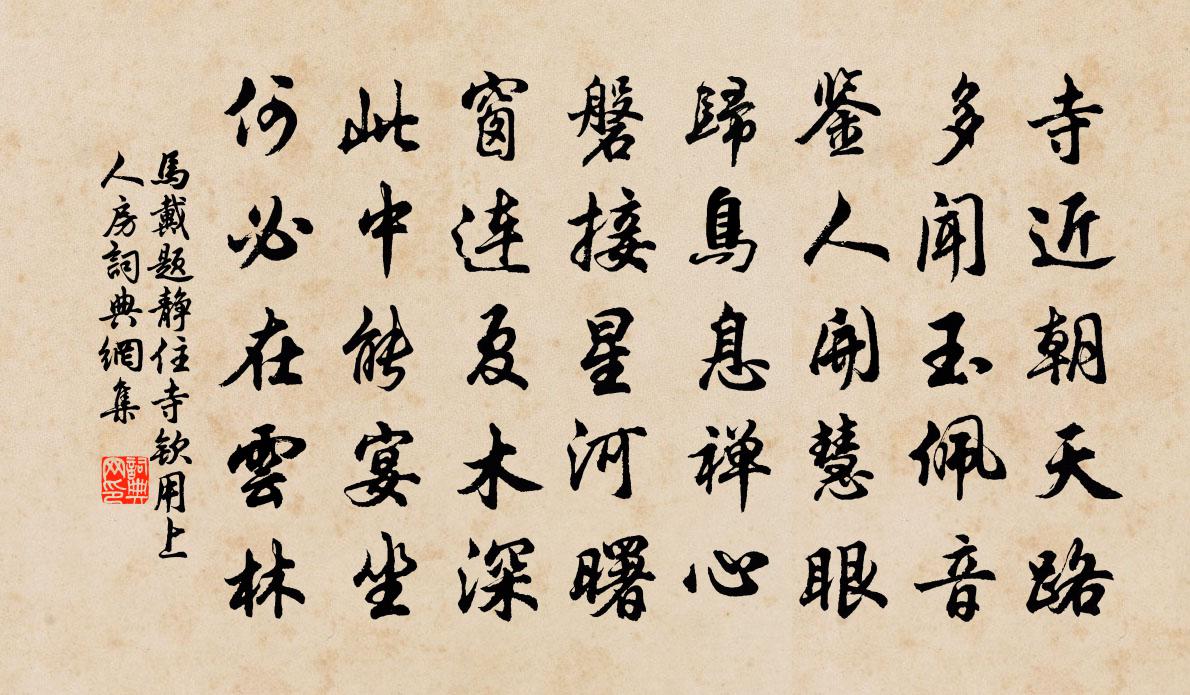 寺近朝天路
多闻玉佩音
鉴人開慧眼
歸鳥息禅心
磐接星河曙
窗连夏木深
此中能宴坐
何必在雲林
馬戴题静住寺欽用上
人房詞典網集
詞典
网印